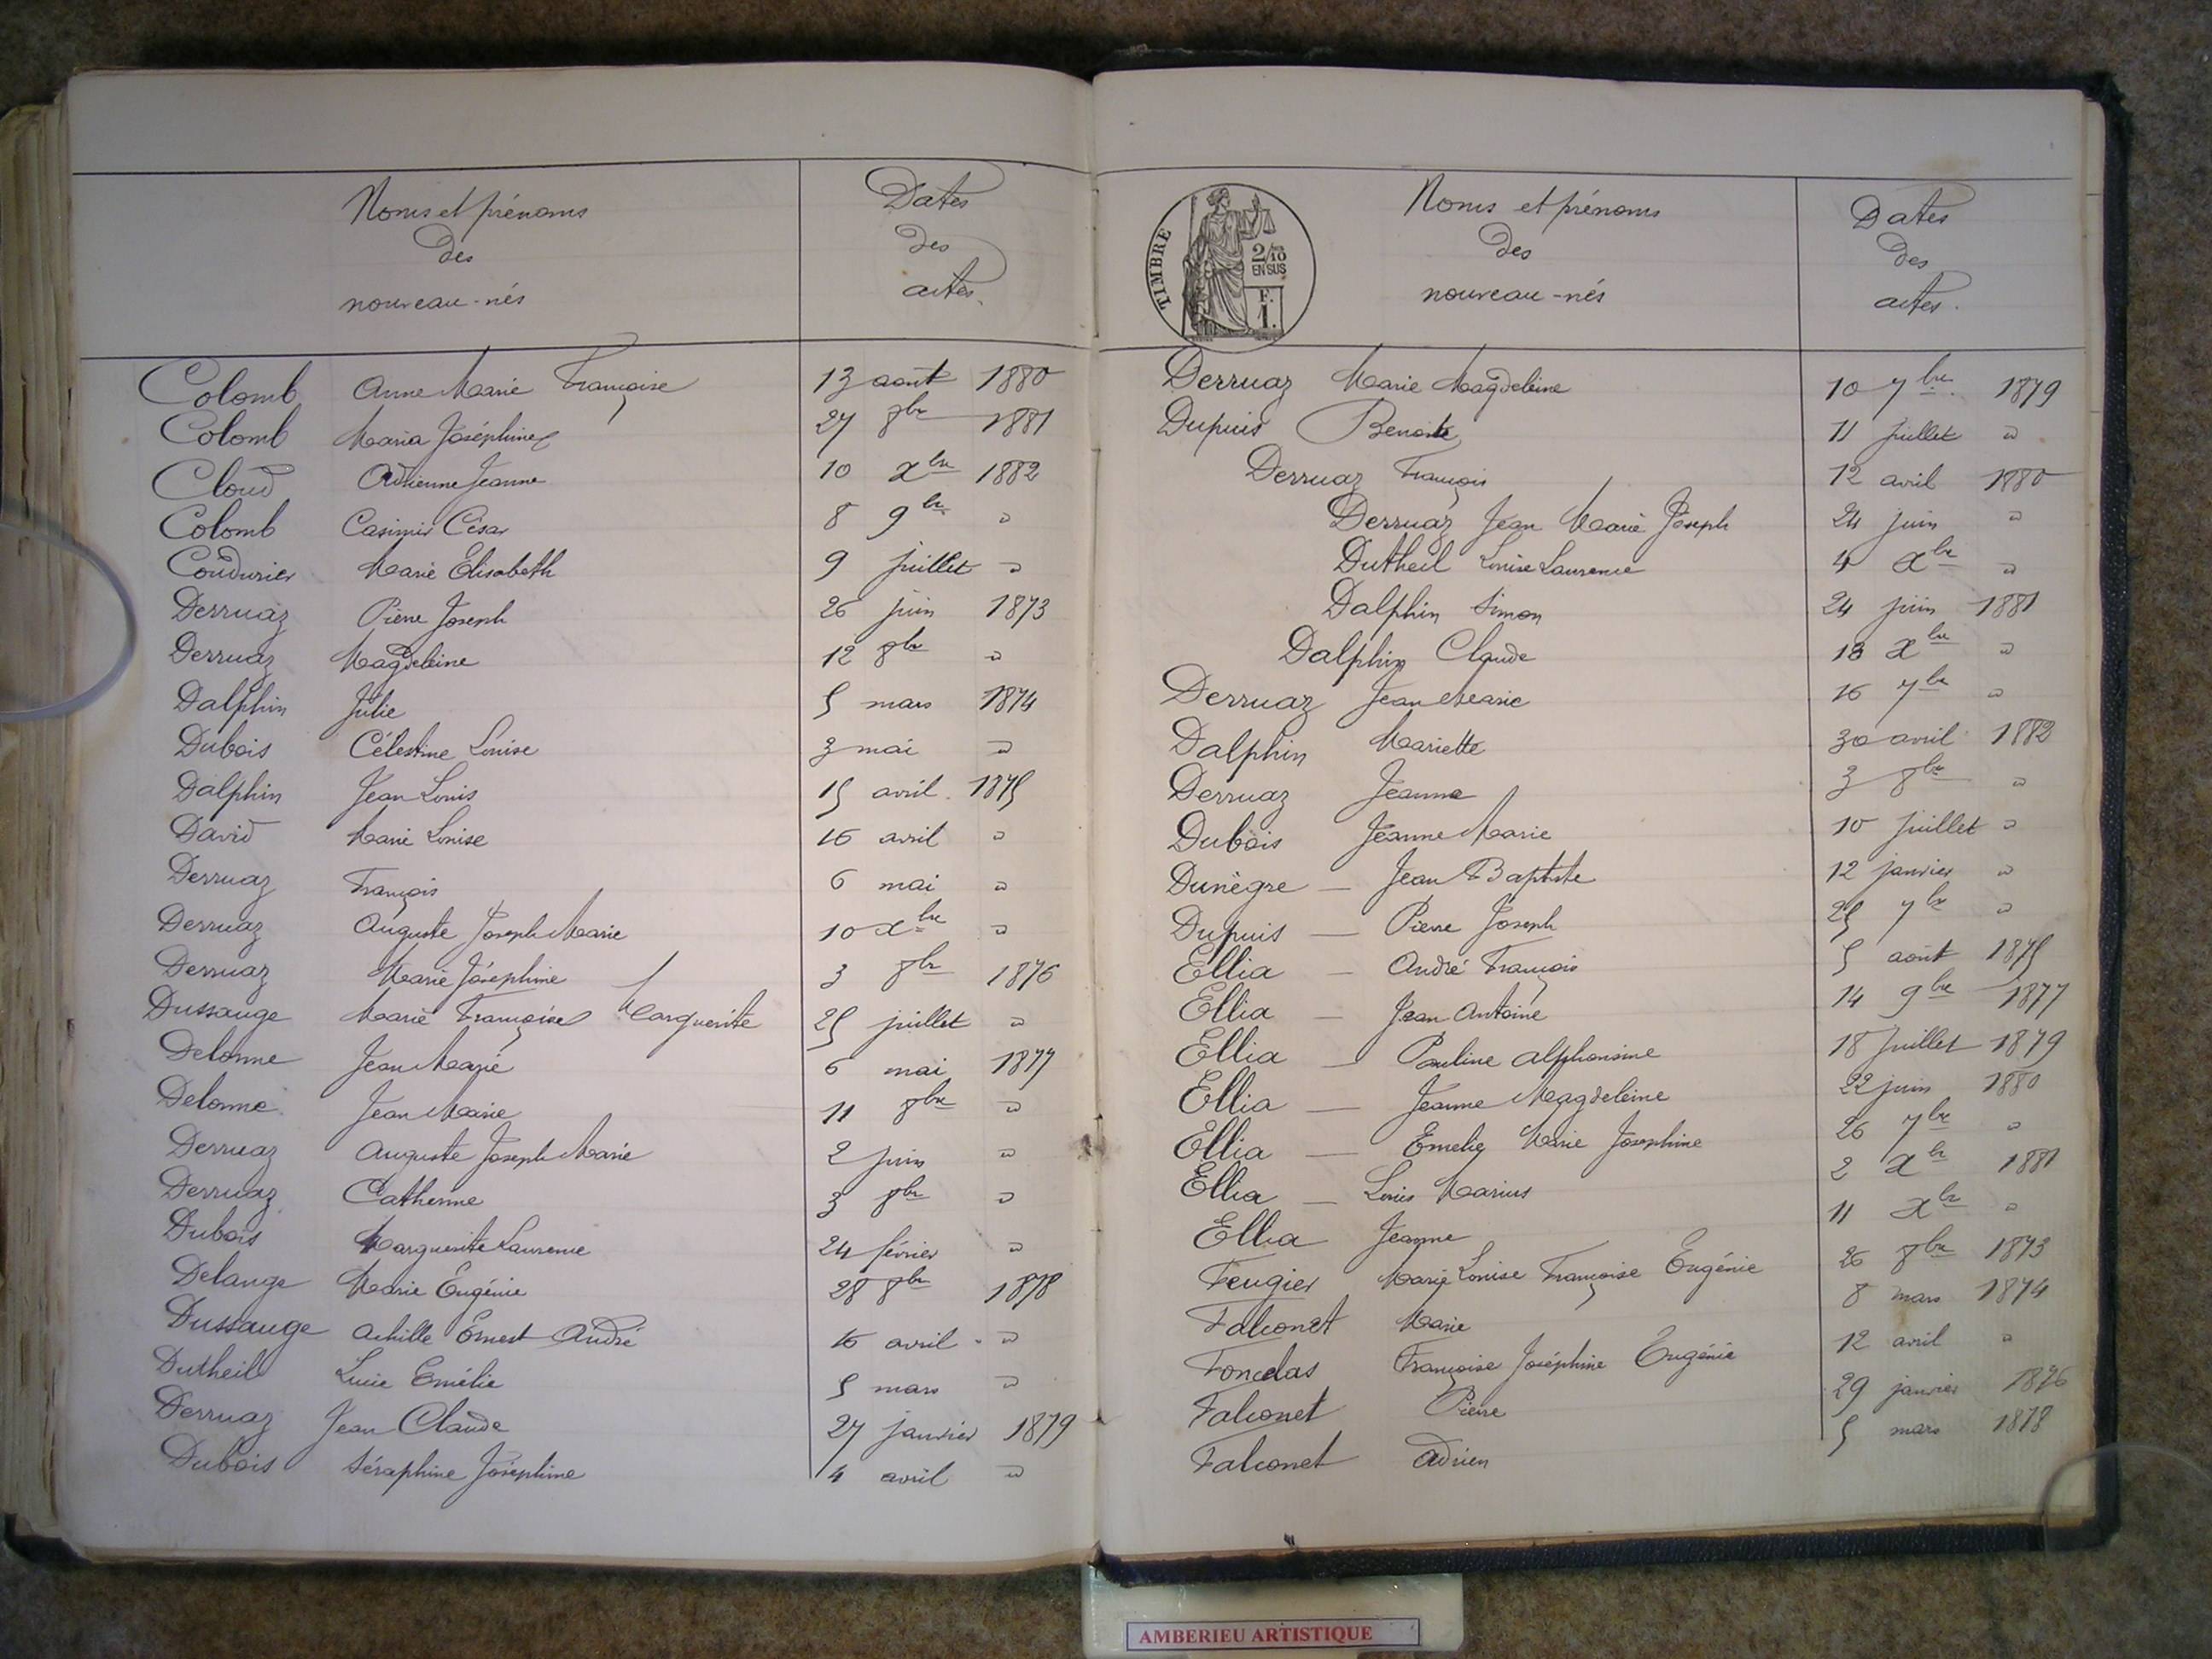 Noms et prénoms
des
nouveau-nés
Dates
des
actes.
Colomb Anne Marie Françoise 13 août 1880
Colomb Maria Joséphine 27 8bre 1881
Cloud Adrienne Jeanne 10 xbre 1882
Colomb Casimir César 8 9bre "
Coudurier Marie Elisabeth 9 juillet "
Derruaz Pierre Joseph 26 juin 1873
Derruaz Magdeleine 12 8bre "
Dalphin Julie 5 mars 1874
Dubois Célestine Louise 3 mai "
Dalphin Jean Louis 15 avril 1875
David Marie Louise 16 avril "
Derruaz François 6 mai "
Derruaz Auguste Joseph Marie 10 xbre "
Derruaz Marie Joséphine 3 8bre 1876
Dussauge Marie Françoise Marguerite 25 juillet "
Delorme Jean Marie 6 mai 1877
Delorme Jean Marie 11 8bre "
Derruaz Auguste Joseph Marie 2 juin "
Derruaz Catherine 3 8bre "
Dubois Marguerite Laurence 24 février "
Delange Marie Eugénie 28 8bre 1878
Dussauge Achille Ernest André 16 avril "
Dutheil Lucie Emélie 5 mars "
Derruaz Jean Claude 27 janvier 1879
Dubois Séraphine Joséphine 4 avril "
TIMBRE
2/10
EN SUS
F.
1.
Noms et prénoms
des
nouveau-nés
Dates
des
actes.
Derruaz Marie Magdeleine 10 7bre. 1879
Dupuis Benoite 11 juillet "
Derruaz François 12 avril 1880
Derruaz Jean Marie Joseph 24 juin "
Dutheil Louise Laurence 4 xbre "
Dalphin Simon 24 juin 1881
Dalphin Claude 18 xbre "
Derruaz Jean Marie 16 7bre "
Dalphin Mariette 30 avril 1882
Derruaz Jeanne 3 8bre "
Dubois Jeanne Marie 10 juillet "
Dunègre - Jean Baptiste 12 janvier "
Dupuis - Pierre Joseph 25 7bre "
Ellia - André François 5 août 1875
Ellia - Jean Antoine 14 9bre 1877
Ellia - Pauline Alphonsine 18 juillet 1879
Ellia - Jeanne Magdeleine 22 juin 1880
Ellia - Emelie Marie Josephine 26 7bre "
Ellia - Louis Marius 2 xbre 1881
Ellia Jeanne 11 xbre "
Feugier Marie Louise Françoise Eugénie 26 8bre 1873
Falconet Marie 8 mars 1874
Foncelas Françoise Joséphine Eugénie 12 avril "
Falconet Pierre 29 janvier 1876
Falconet Adrien 5 mars 1878
AMBERIEU ARTISTIQUE